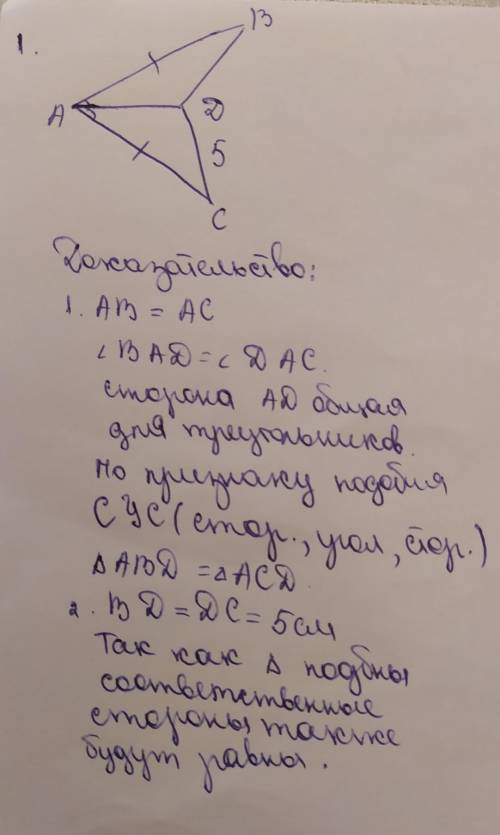 1.
B
A
D
5
C
Доказательство:
1. AB = AC
∠BAD = ∠DAC.
сторона AD общая
для треугольников.
по признаку подобия
СУС (стор., угол, стор.)
△ABD = △ACD
2. BD = DC = 5см
Так как △ подбны
соответственные
стороны также
будут равны.